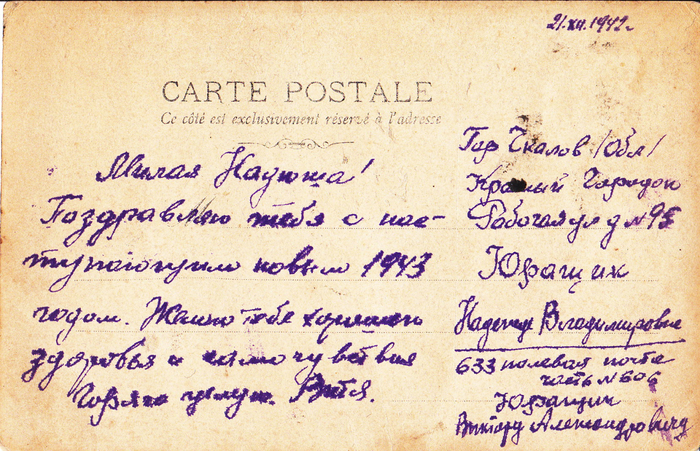 21.XII.1942г.
CARTE POSTALE
Ce côté est exclusivement réservé à l'adresse
Милая Надюша!
Поздравляю тебя с нас-
тупающим новым 1943
годом. Желаю тебе хорошего
здоровья и самочувствия
Горячо целую. Витя.
Гор Чкалов /Обл/
Красный Городок
Рабочая ул д N 95
Юращик
Надежде Владимировне
633 полевая почта
часть N 606
Юращик
Виктору Александровичу